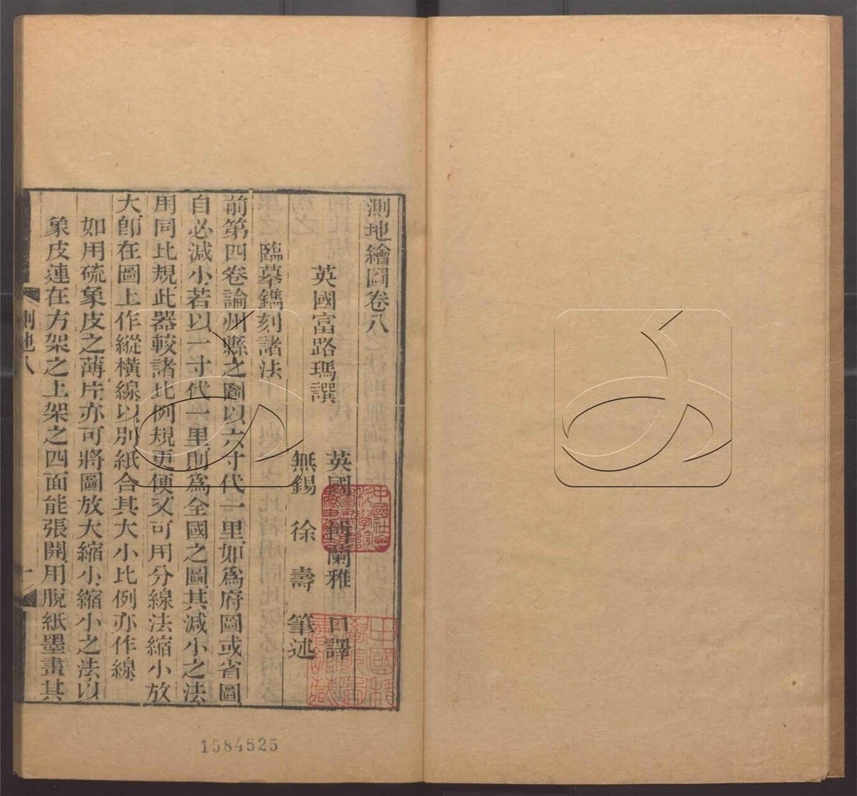 測地繪圖卷八
英國富路瑪譔
英國 傅蘭雅 口譯
無錫 徐壽 筆述
臨摹鐫刻諸法
前第四卷論州縣之圖以六寸代一里如爲府圖或省圖
自必減小若以一寸代一里則爲全國之圖其減小之法
用同比規此器較諸比例規更便又可用分線法縮小放
大卽在圖上作縱橫線以別紙合其大小比例亦作線
如用硫象皮之薄片亦可將圖放大縮小縮小之法以
象皮連在方架之上架之四面能張開用脫紙墨畫其
測地八
一
1584525